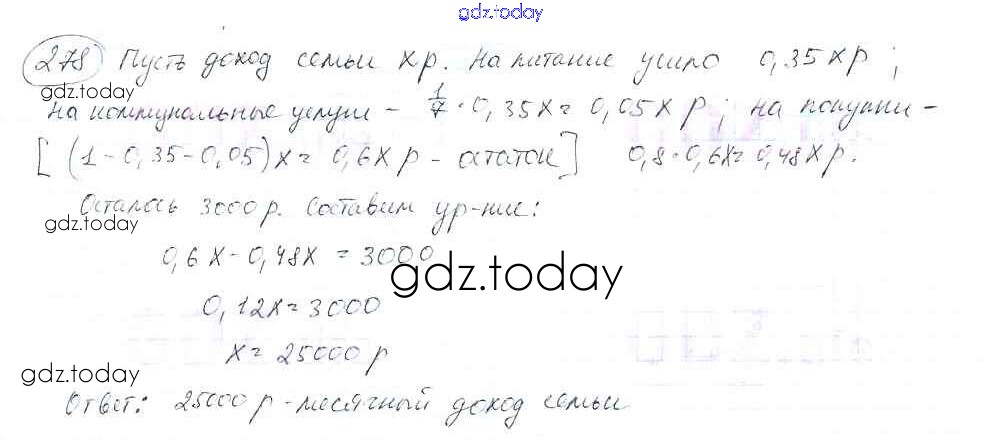 gdz.today
278 Пусть доход семьи х р. На питание ушло 0,35х р;
gdz.today
на коммунальные услуги - 1/7 · 0,35х = 0,05х р; на покупки -
[(1-0,35-0,05)х = 0,6х р - остаток] 0,8·0,6х = 0,48х р.
Осталось 3000 р. Составим ур-ние:
gdz.today
0,6х - 0,48х = 3000
gdz.today
0,12х = 3000
х = 25000 р
gdz.today
Ответ: 25000 р - месячный доход семьи